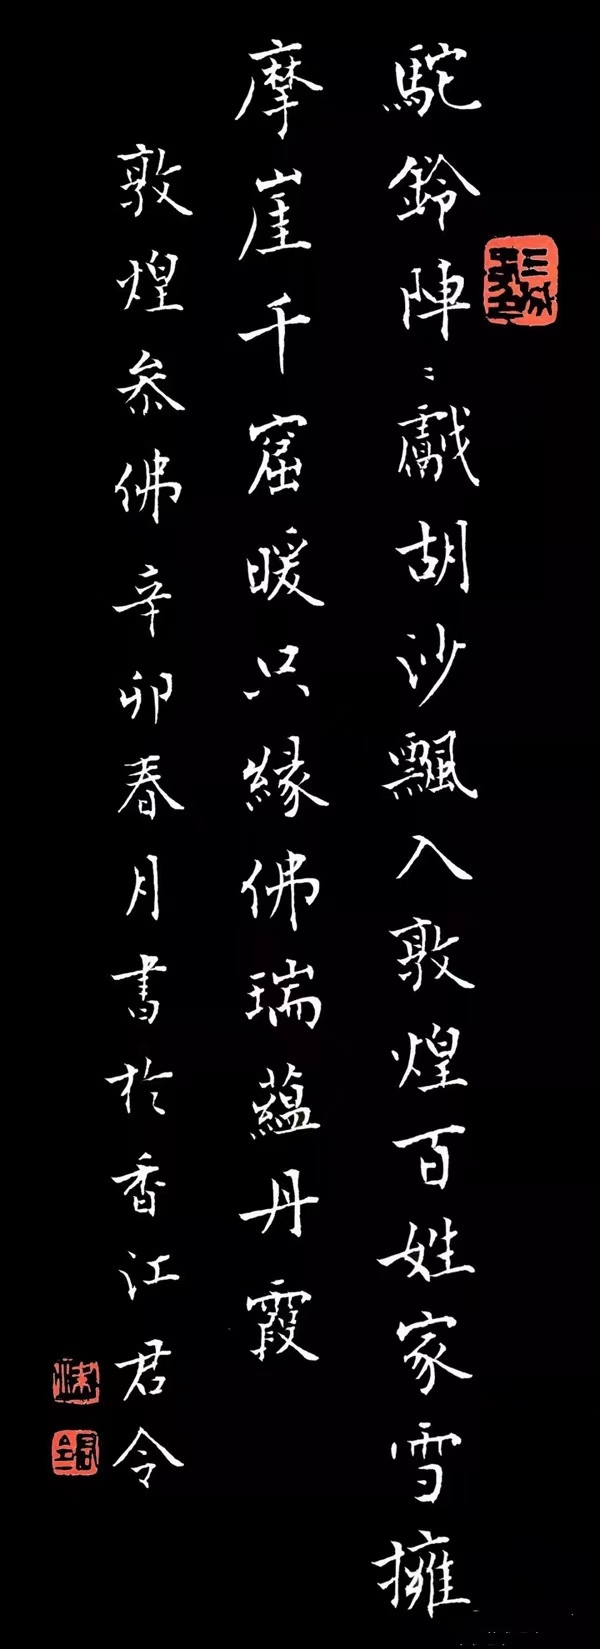 駝鈴陣〻戲胡沙飄入敦煌百姓家雪擁
摩崖千窟暖只緣佛瑞蘊丹霞
敦煌叅佛辛卯春月書於香江君令